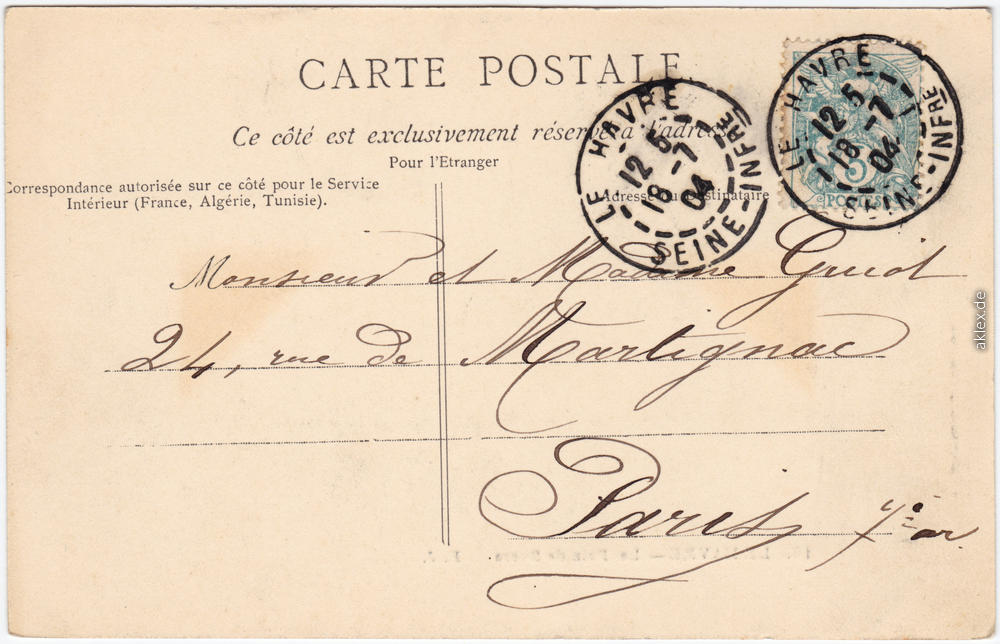 CARTE POSTALE
Ce côté est exclusivement réservé à l'adresse
Pour l'Etranger
Correspondance autorisée sur ce côté pour le Service
Intérieur (France, Algérie, Tunisie).
Adresse du Destinataire
LE HAVRE
12 5
18 -7
04
SEINE-INFRE
LE HAVRE
12 5
18 -7
04
SEINE-INFRE
5
POSTES
Monsieur et Madame Guiot
24, rue de Martignac
Paris 7e ar
LE HAVRE
aklex.de